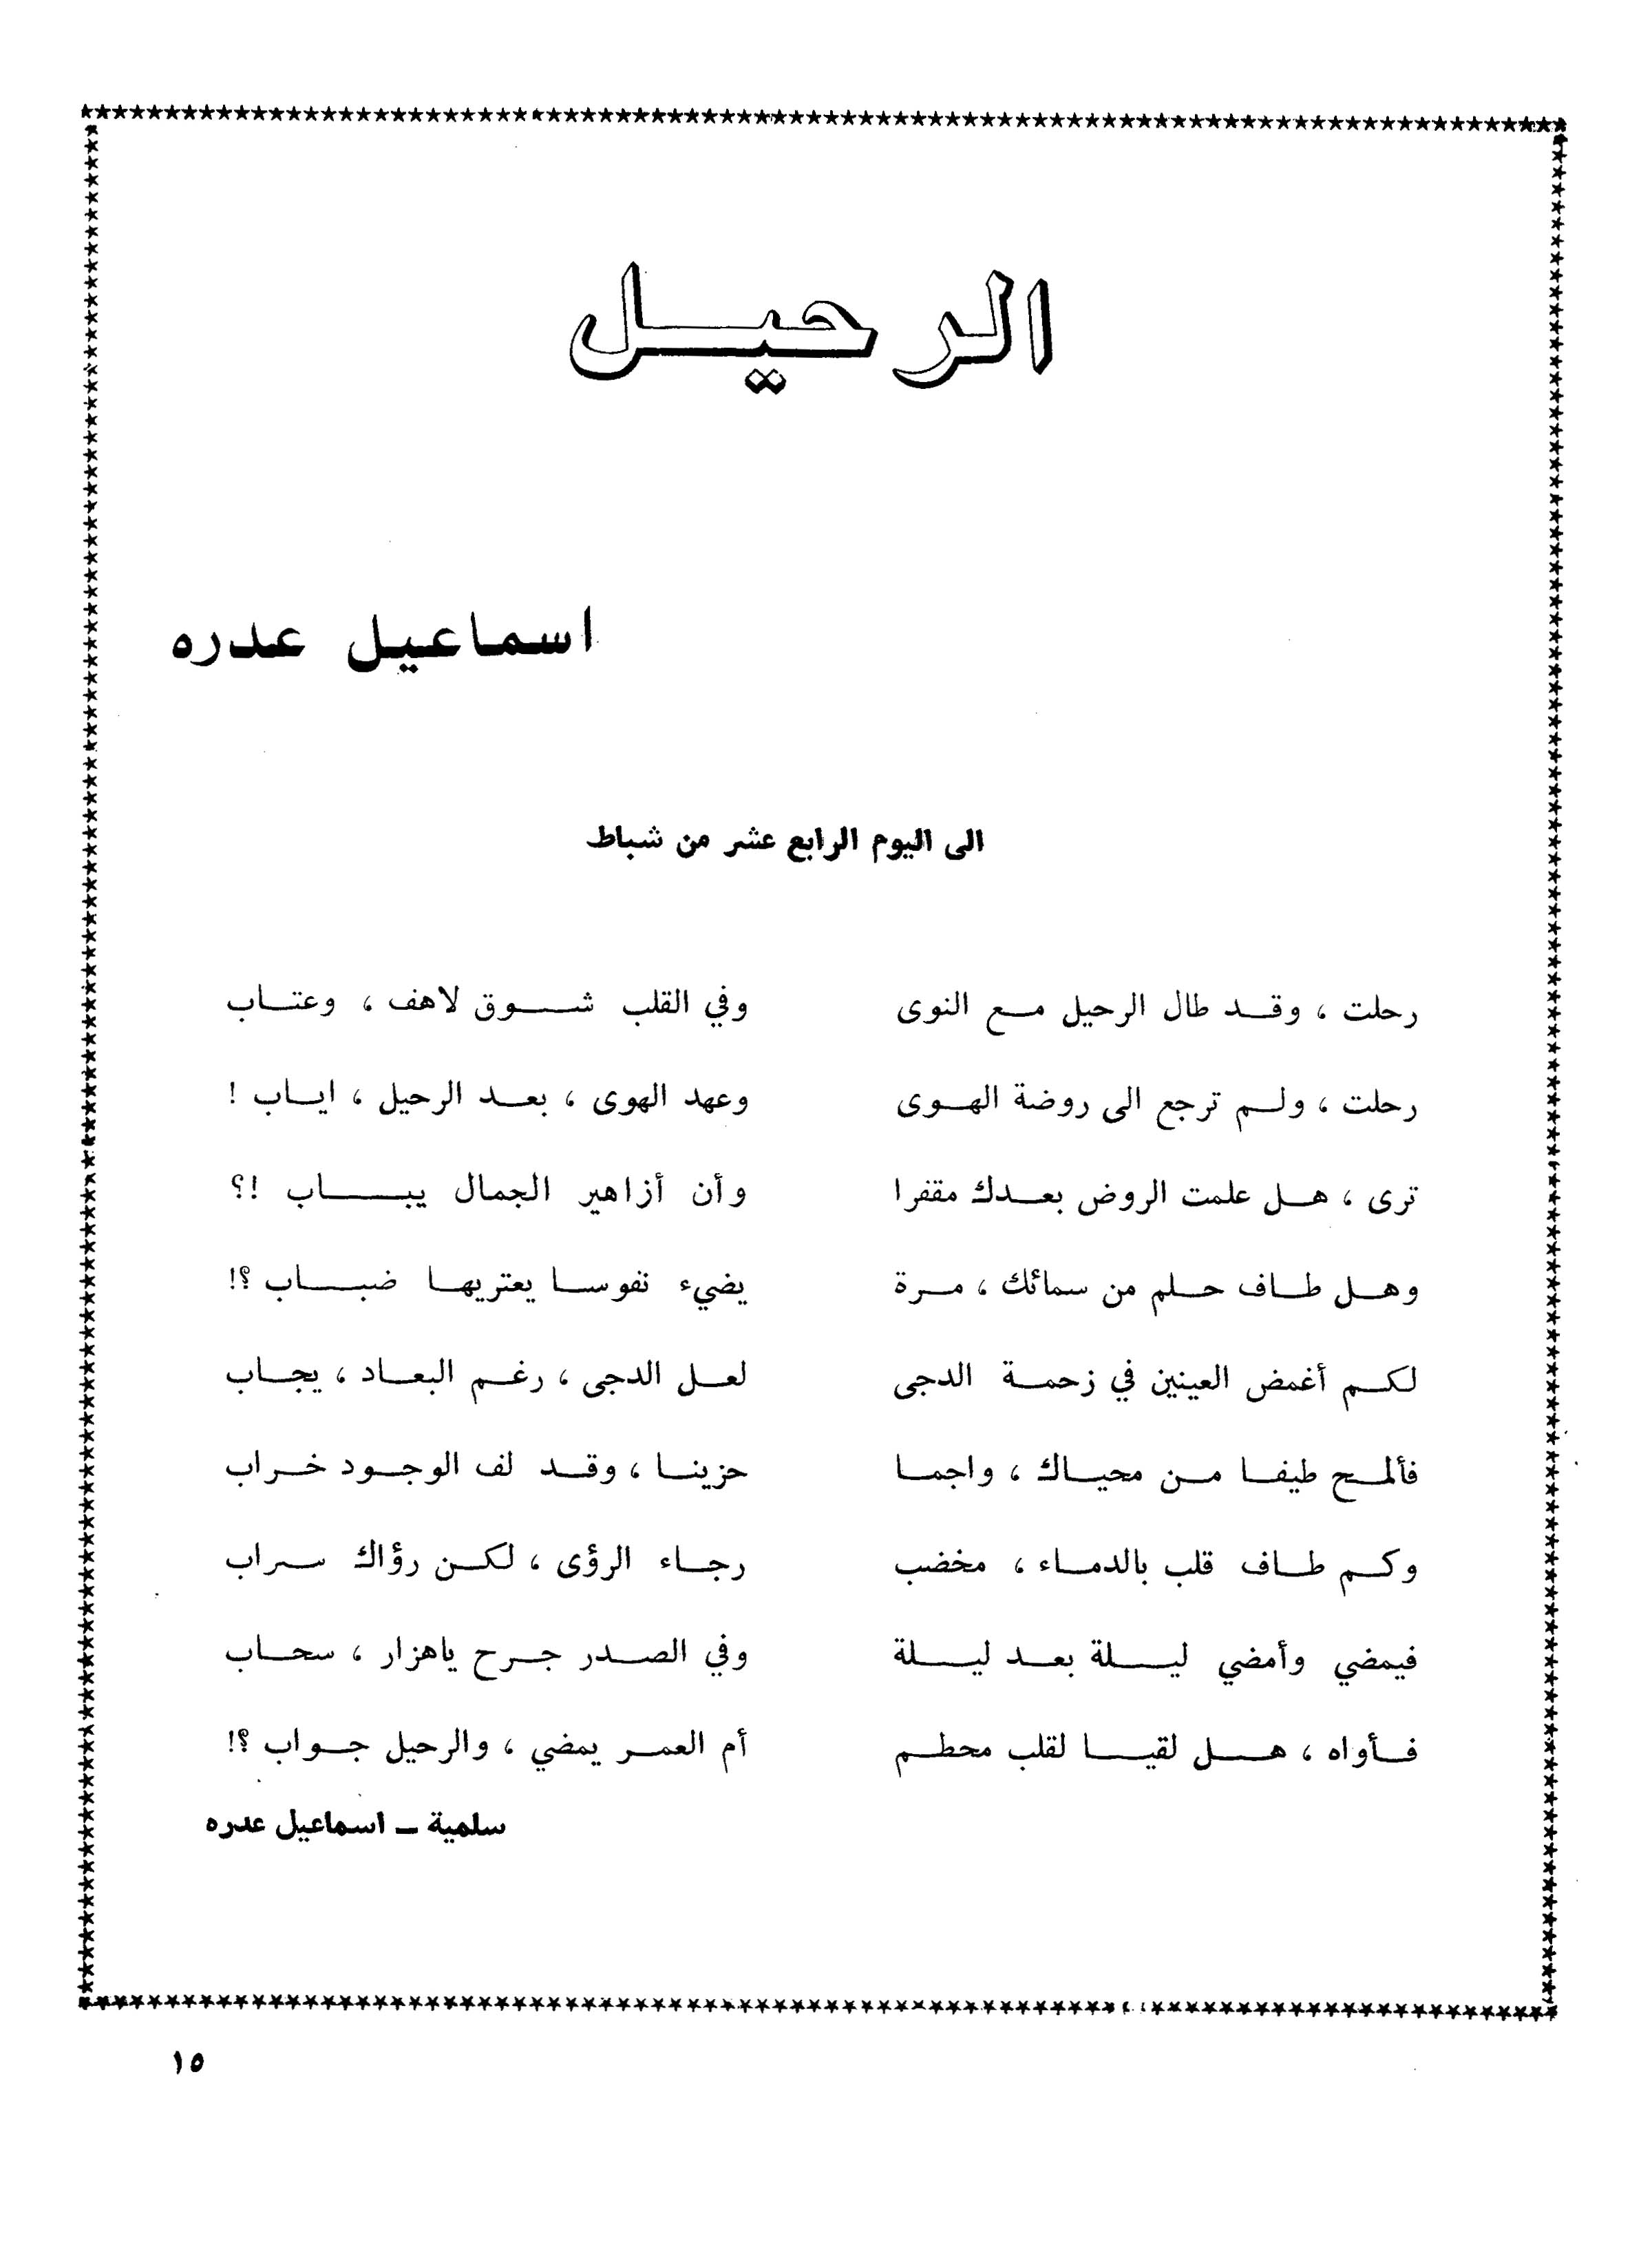 الرحيل
اسماعيل عدره
الى اليوم الرابع عشر من شباط
رحلت ، وقد طال الرحيل مع النوى وفي القلب شوق لاهف ، وعتاب
رحلت ، ولم ترجع الى روضة الهوى وعهد الهوى ، بعد الرحيل ، اياب !
ترى ، هل علمت الروض بعدك مقفرا وأن أزاهير الجمال يباب !؟
وهل طاف حلم من سمائك ، مرة يضيء نفوسا يعتريها ضباب ؟!
لكم أغمض العينين في زحمة الدجى لعل الدجى ، رغم البعاد ، يجاب
فألمح طيفا من محياك ، واجما حزينا ، وقد لف الوجود خراب
وكم طاف قلب بالدماء ، مخضب رجاء الرؤى ، لكن رؤاك سراب
فيمضي وأمضي ليلة بعد ليلة وفي الصدر جرح ياهزار ، سحاب
فأواه ، هل لقيا لقلب محطم أم العمر يمضي ، والرحيل جواب ؟!
سلمية ــ اسماعيل عدره
١٥